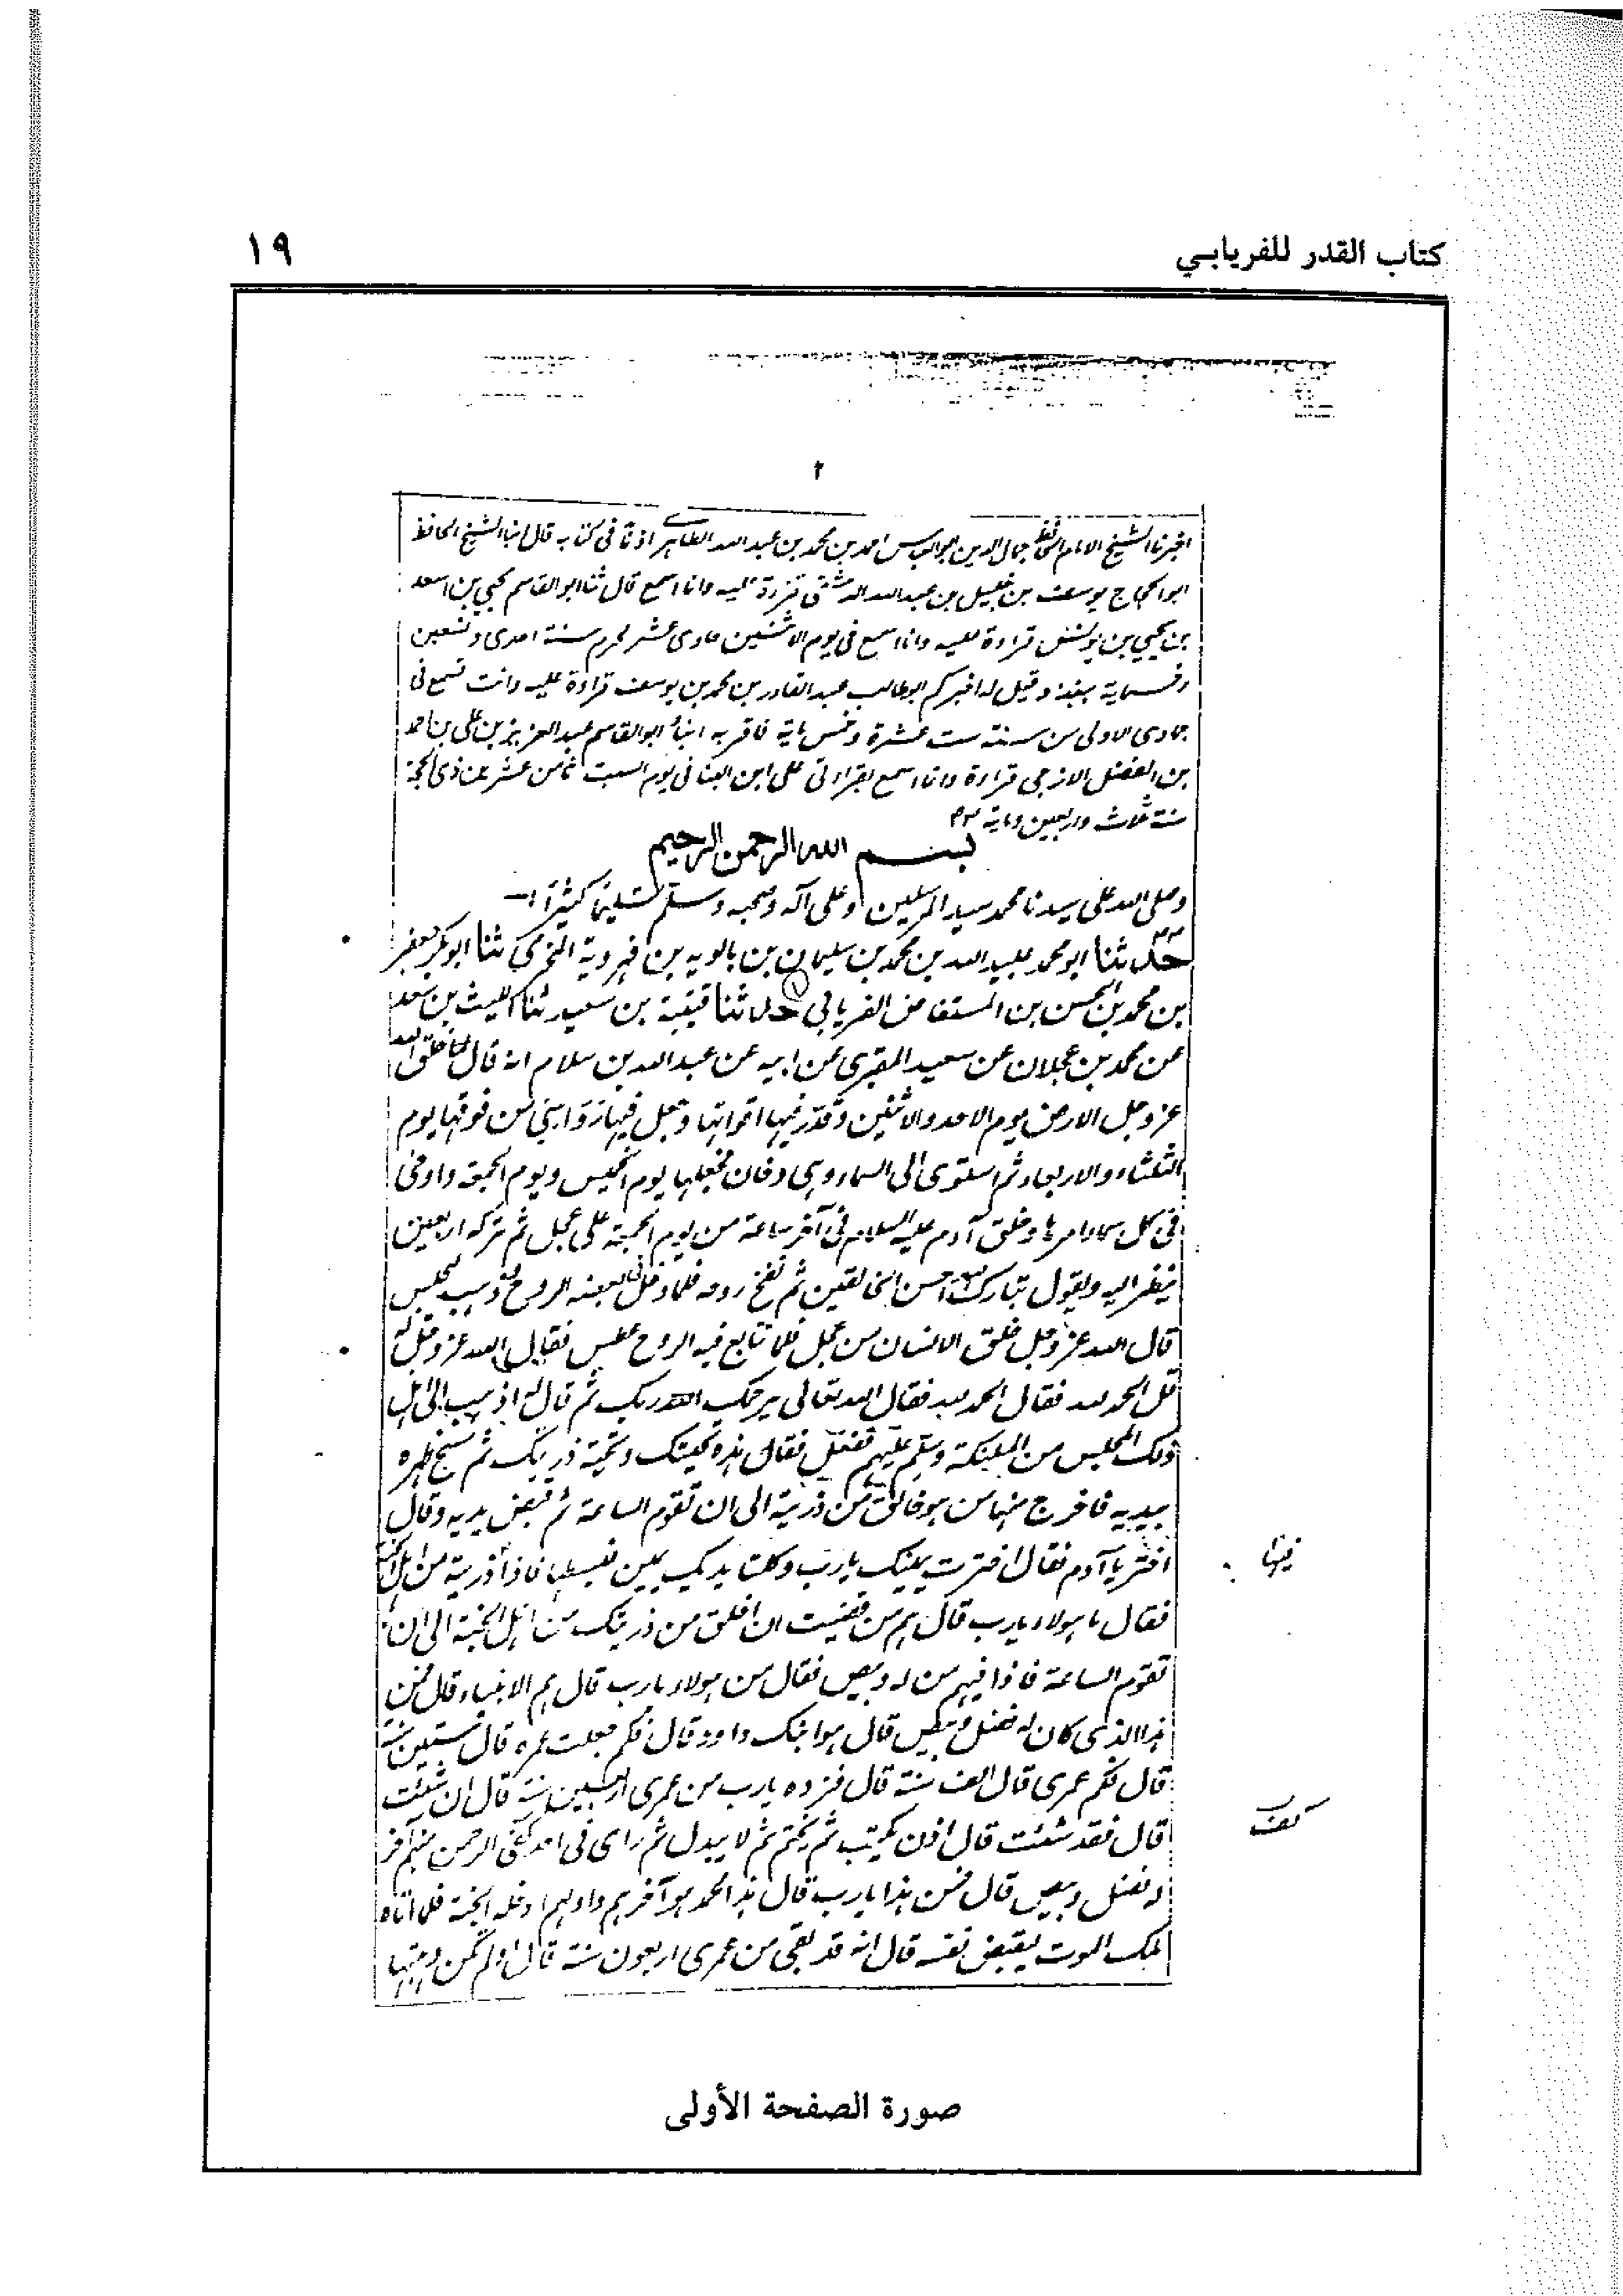 كتاب القدر للفريابي
١٩
٢
اخبرنا الشيخ الامام الحافظ جمال الدين ابو العباس احمد بن محمد بن عبد الله الظاهري اذنا فى كتابه قال انبا الشيخ الحافظ
ابو الحجاج يوسف بن خليل بن عبد الله الدمشقى قراءة عليه وانا اسمع قال ثنا ابو القاسم يحيى بن اسعد
بن يحيى بن بوش قراءة عليه وانا اسمع فى يوم الاثنين حادى عشر محرم سنة احدى وتسعين
وخمسماية ببغداد وقيل له اخبركم ابو طالب عبد القادر بن محمد بن يوسف قراءة عليه وانت تسمع فى
جمادى الاولى من سنة ست عشرة وخمس ماية فاقر به انبا ابو القاسم عبد العزيز بن على بن احمد
بن الفضل الازجى قراءة وانا اسمع بقراءتى على ابن البنا فى يوم السبت ثامن عشر من ذى الحجة
سنة ثلاث واربعين وماية
بسم الله الرحمن الرحيم
وصلى الله على سيدنا محمد سيد المرسلين وعلى آله وصحبه وسلم تسليما كثيرا
حدثنا ابو محمد عبيد الله بن محمد بن سليمان بن بالويه بن فهرويه المخرمى ثنا ابو بكر جعفر
بن محمد بن الحسن بن المستفاض الفريابى حدثنا قتيبة بن سعيد ثنا الليث بن سعد
عن محمد بن عجلان عن سعيد المقبرى عن ابيه عن عبد الله بن سلام انه قال لما خلق الله
عز وجل الارض يوم الاحد والاثنين وقدر فيها اقواتها وجعل فيها رواسى من فوقها يوم
الثلثاء والاربعاء ثم استوى الى السماء وهى دخان فجعلها يوم الخميس ويوم الجمعة واوحى
فى كل سماء امرها وخلق آدم عليه السلام فى آخر ساعة من يوم الجمعة على عجل ثم تركه اربعين
ينظر اليه ويقول تبارك الله احسن الخالقين ثم نفخ روحه فلما دخل فى بعضه الروح ذهب ليجلس
قال الله عز وجل خلق الانسان من عجل فلما تتابع فيه الروح عطس فقال الله عز وجل له
قل الحمد لله فقال الحمد لله فقال الله تعالى يرحمك الله ربك ثم قال له اذهب الى اهل
ذلك المجلس من الملئكة وسلم عليهم ففعل فقال هذه تحيتك وتحية ذريتك ثم مسح ظهره
بيديه فاخرج منها من هو خالق من ذريته الى ان تقوم الساعة ثم قبض يديه وقال
اختر يا آدم فقال اخترت يمينك يا رب وكلتا يديك يمين فبسطها فاذا ذريته من اهل الجنة
فيها
فقال ما هولاء يا رب قال هم من قضيت ان اخلق من ذريتك من اهل الجنة الى ان
تقوم الساعة فاذا فيهم من له وبيص فقال من هولاء يا رب قال هم الانبياء قال فمن
هذا الذى كان له فضل وبيص قال هو ابنك داود قال فكم جعلت عمره قال ستين سنة
قال فكم عمرى قال الف سنة قال فزده يا رب من عمرى اربعين سنة قال ان شئت
قال فقد شئت قال اذن يكتب ثم يختم ثم لا يبدل ثم راى فى احد كفى الرحمن منهم آخر
كف
له فضل وبيص قال فمن هذا يا رب قال هذا محمد هو آخرهم واولهم ادخله الجنة فلما اتاه
ملك الموت ليقبض نفسه قال انه قد بقى من عمرى اربعون سنة قال اولم تكن وهبتها
صورة الصفحة الأولى